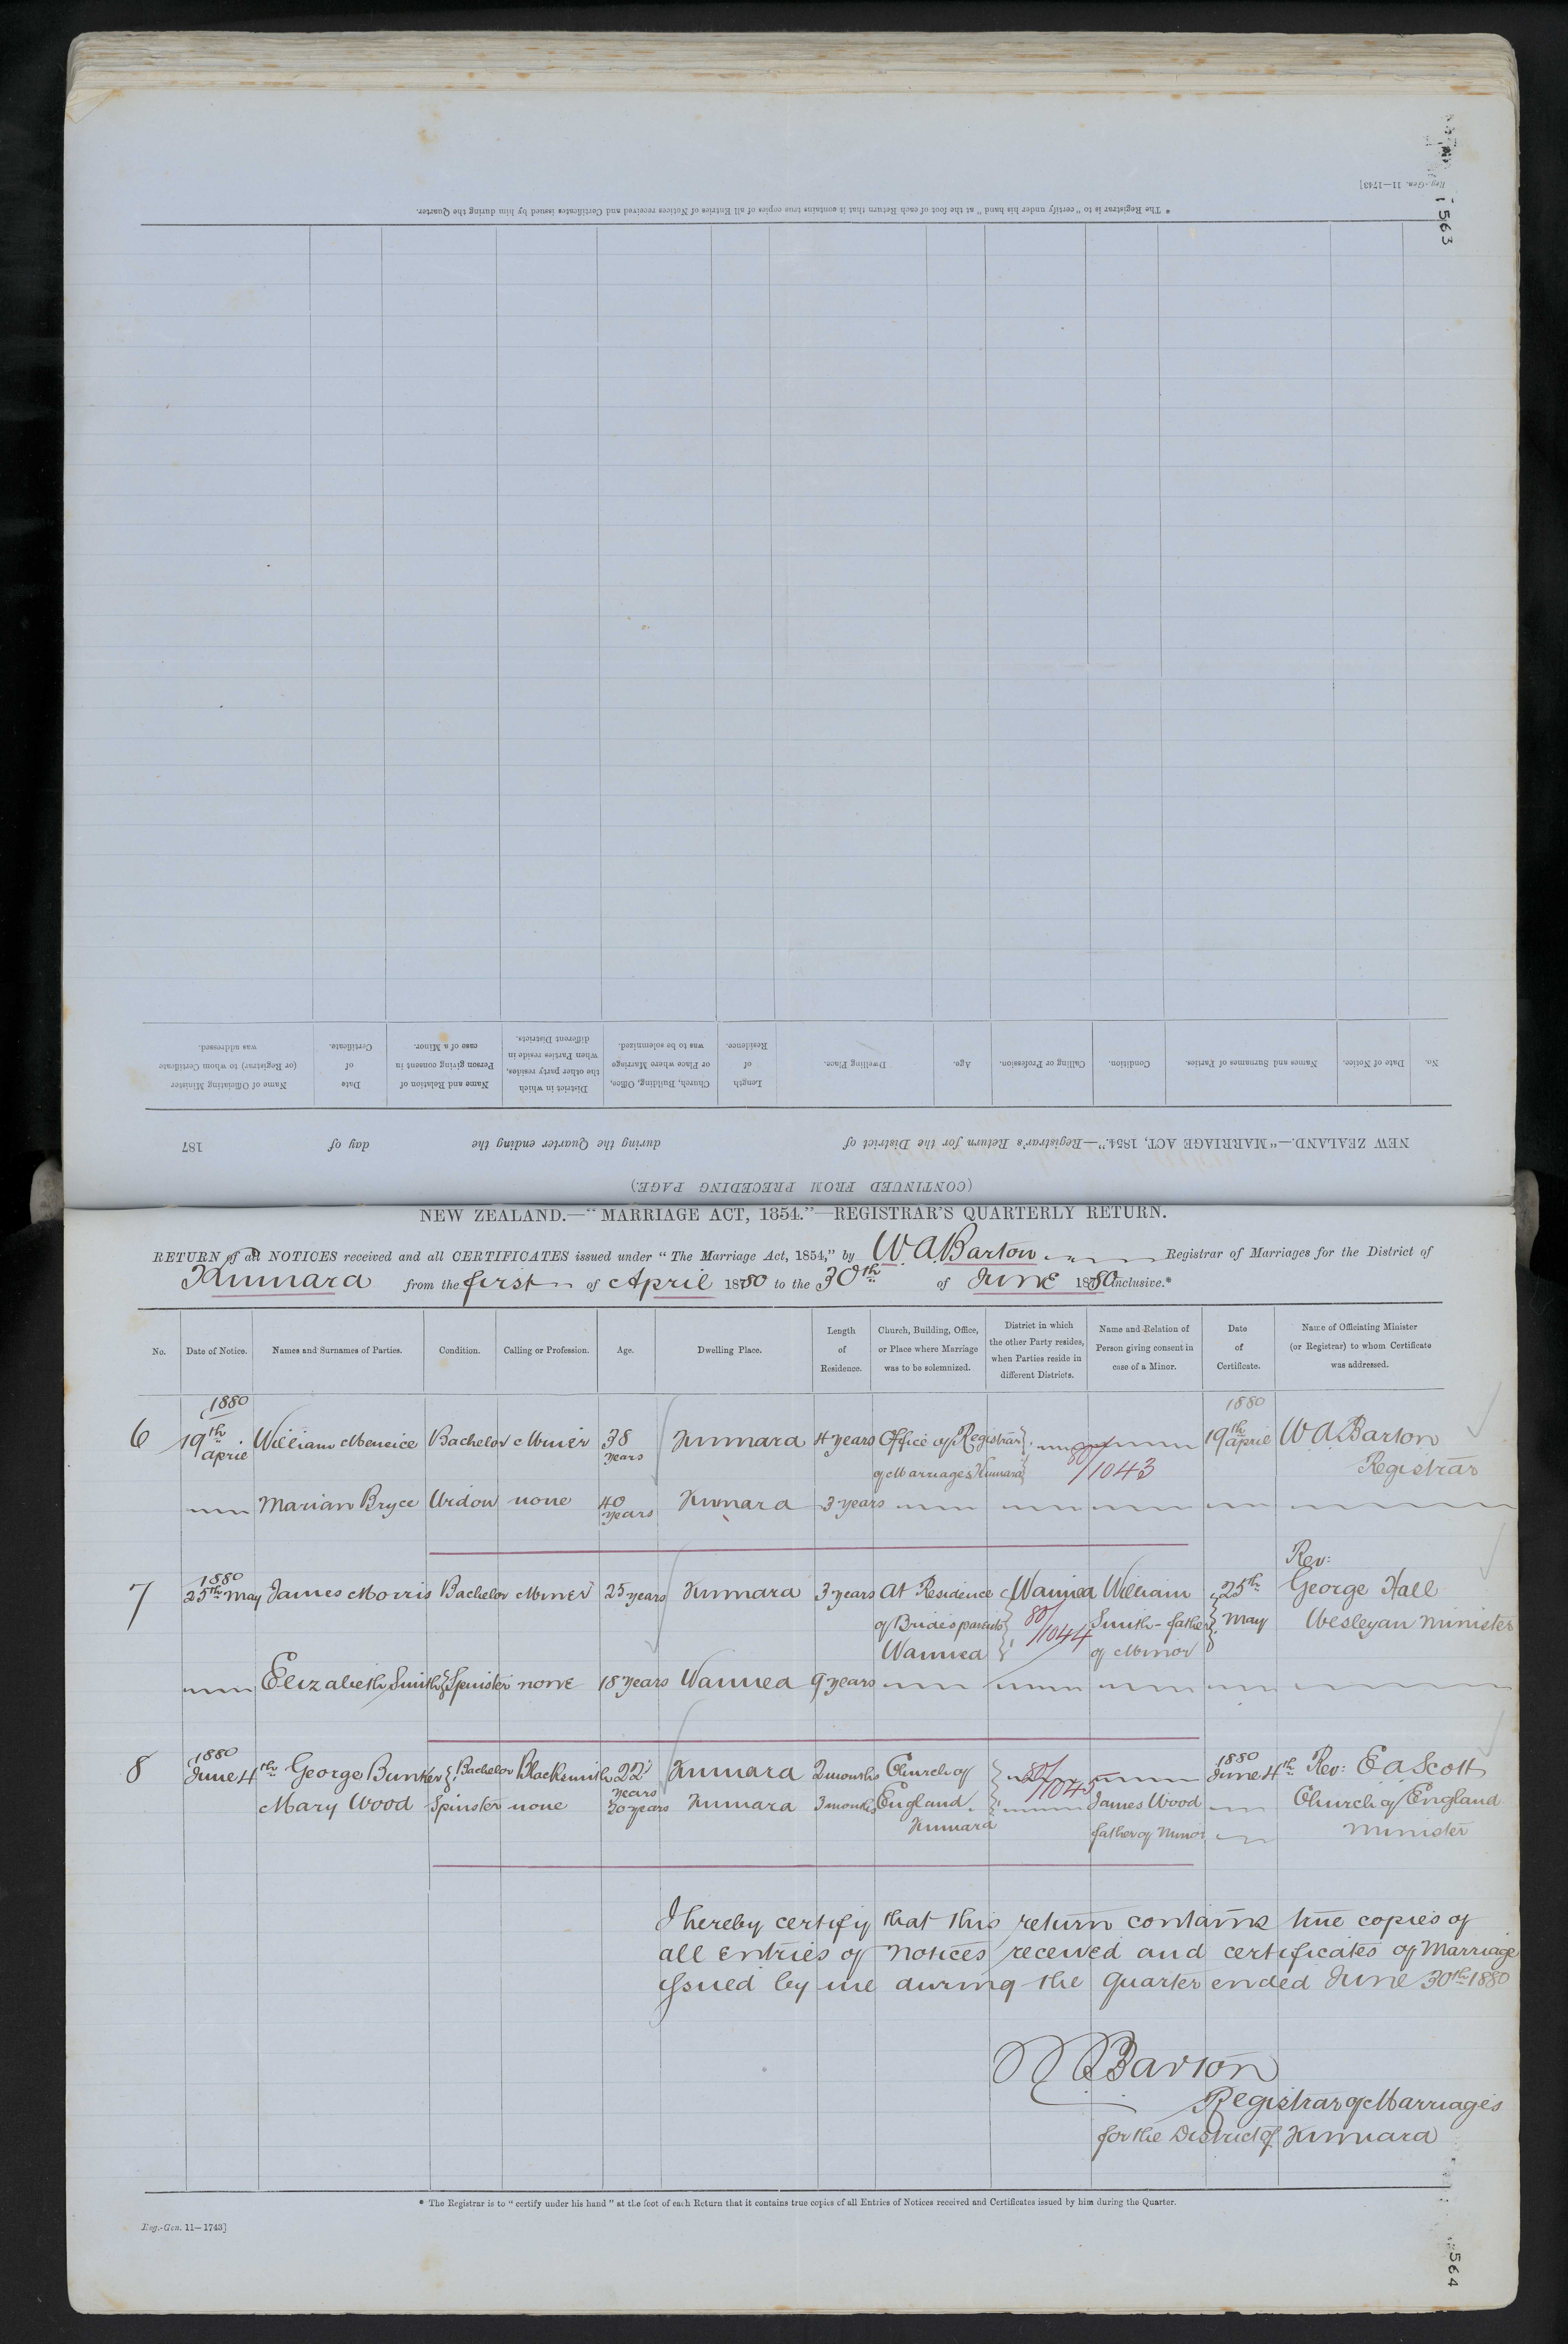 Reg.-Gen. 11—1743]
563
* The Registrar is to "certify under his hand" at the foot of each Return that it contains true copies of all Entries of Notices received and Certificates issued by him during the Quarter.
No.
Date of Notice.
Names and Surnames of Parties.
Condition.
Calling or Profession.
Age.
Dwelling Place.
Length of Residence.
Church, Building, Office, or Place where Marriage was to be solemnized.
District in which the other party resides, when Parties reside in different Districts.
Name and Relation of Person giving consent in case of a Minor.
Date of Certificate.
Name of Officiating Minister (or Registrar) to whom Certificate was addressed.
NEW ZEALAND.—"MARRIAGE ACT, 1854."—Registrar's Return for the District of during the Quarter ending the day of 187
(CONTINUED FROM PRECEDING PAGE.)
NEW ZEALAND.—"MARRIAGE ACT, 1854."—REGISTRAR'S QUARTERLY RETURN.
RETURN of all NOTICES received and all CERTIFICATES issued under "The Marriage Act, 1854," by W. A. Barton Registrar of Marriages for the District of
Kumara from the first of April 1880 to the 30th of June 1880 inclusive.*
No.
Date of Notice.
Names and Surnames of Parties.
Condition.
Calling or Profession.
Age.
Dwelling Place.
Length of Residence.
Church, Building, Office, or Place where Marriage was to be solemnized.
District in which the other Party resides, when Parties reside in different Districts.
Name and Relation of Person giving consent in case of a Minor.
Date of Certificate.
Name of Officiating Minister (or Registrar) to whom Certificate was addressed.
1880 1880
6 19th April William Meneice Bachelor Miner 38 years Kumara 4 years Office of Registrar of Marriages Kumara 80/1043 19th April W A Barton Registrar
Marian Bryce Widow none 40 years Kumara 3 years
7 1880 25th May James Morris Bachelor Miner 25 years Kumara 3 years At Residence of Brides parents Waimea Waimea 80/1044 William Smith - father of Minor 25th May Rev: George Hall Wesleyan Minister
Elizabeth Smith Spinster none 18 years Waimea 9 years
8 1880 June 4th George Bunker Bachelor Blacksmith 22 years Kumara 2 months Church of England Kumara 80/1045 1880 June 4th Rev: E A Scott Church of England Minister
Mary Wood Spinster none 20 years Kumara 3 months James Wood father of Minor
I hereby certify that this return contains true copies of
all entries of notices received and certificates of Marriage
issued by me during the quarter ended June 30th 1880
W A Barton
Registrar of Marriages
for the District of Kumara
* The Registrar is to "certify under his hand" at the foot of each Return that it contains true copies of all Entries of Notices received and Certificates issued by him during the Quarter.
Reg.-Gen. 11—1743]
564